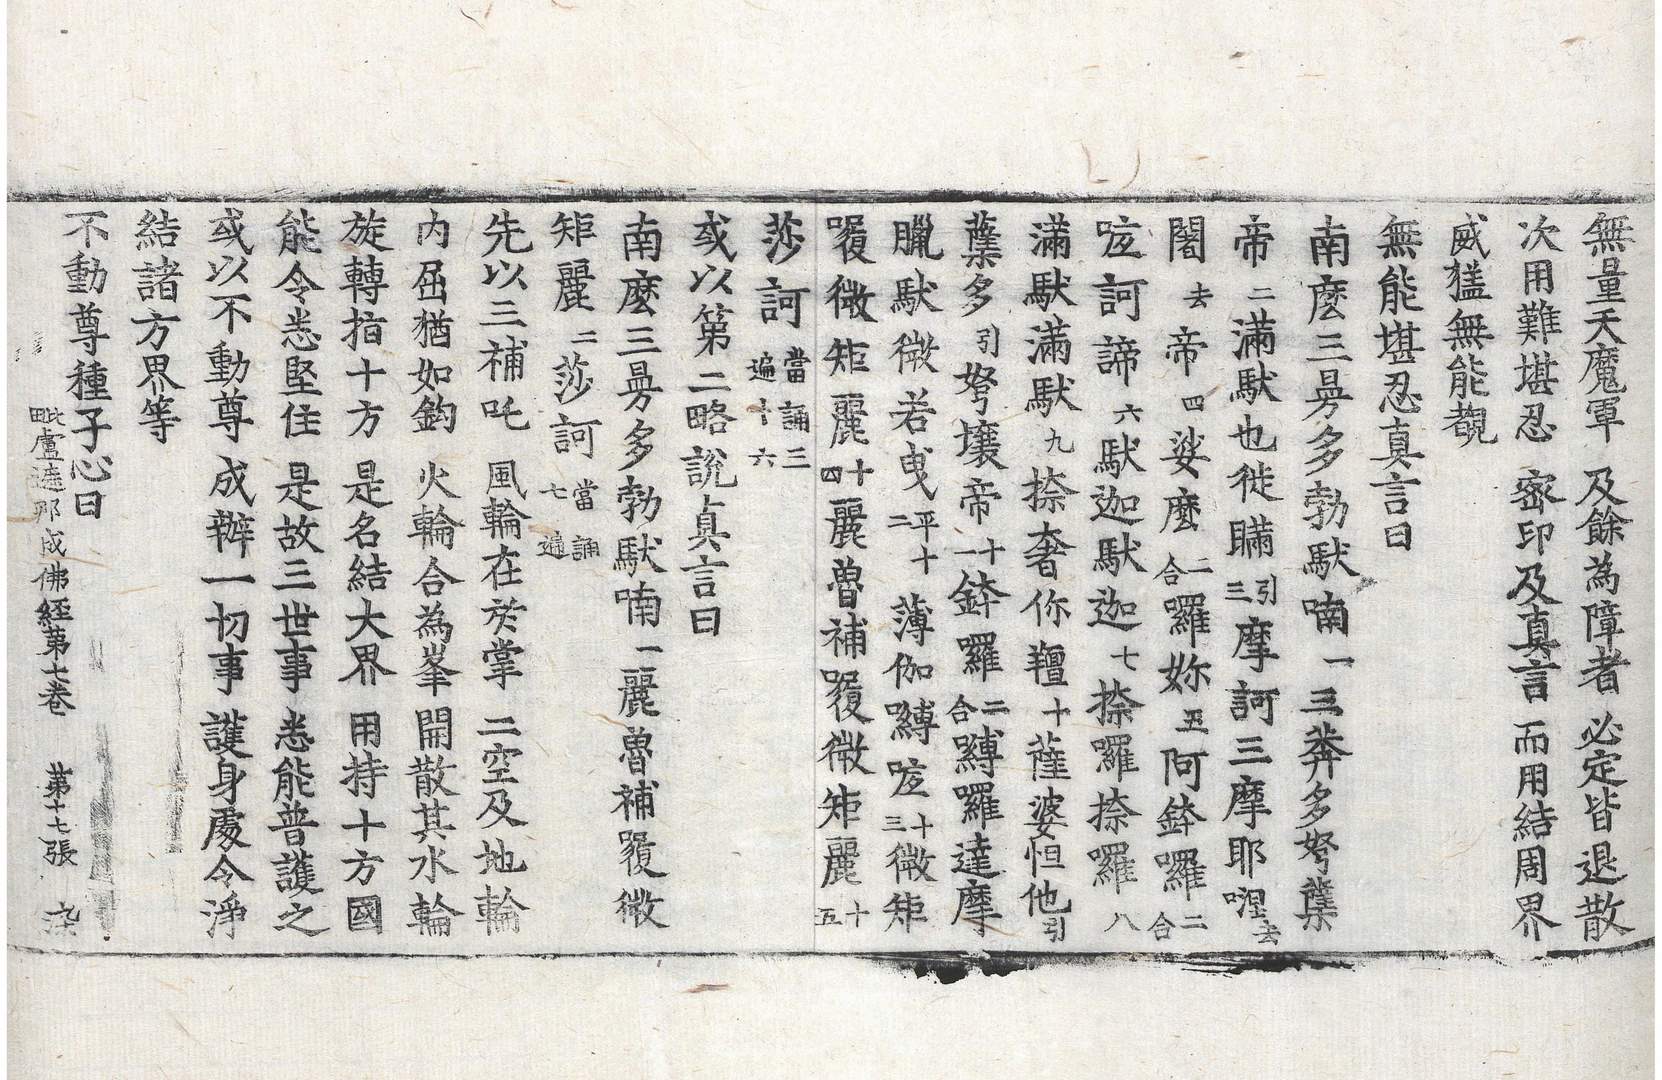 無量天魔軍 及餘為障者 必定皆退散
次用難堪忍 密印及真言 而用結周界
威猛無能覩
無能堪忍真言曰
南麼三曼多勃馱喃一三莽多弩蘖
帝二滿馱也徙瞞引三摩訶三摩耶𠰒去
闍去帝四娑麼二合囉妳五阿鉢囉二合
㖿訶諦六馱迦馱迦七捺囉捺囉八
滿馱滿馱九捺奢你羶十薩婆怛他引
蘖多引弩壤帝十一鉢囉二合嚩囉達摩
臘馱微若曳平十二薄伽嚩㖿十三微矩
㗚微矩麗十四麗魯補㗚微矩麗十五
莎訶當誦三遍十六
或以第二略說真言曰
南麼三曼多勃馱喃一麗魯補㗚微
矩麗二莎訶當誦七遍
先以三補吒 風輪在於掌 二空及地輪
內屈猶如鉤 火輪合為峯 開散其水輪
旋轉指十方 是名結大界 用持十方國
能令悉堅住 是故三世事 悉能普護之
或以不動尊 成辦一切事 護身處令淨
結諸方界等
不動尊種子心曰
毗盧遮那成佛經第七卷 第十七張